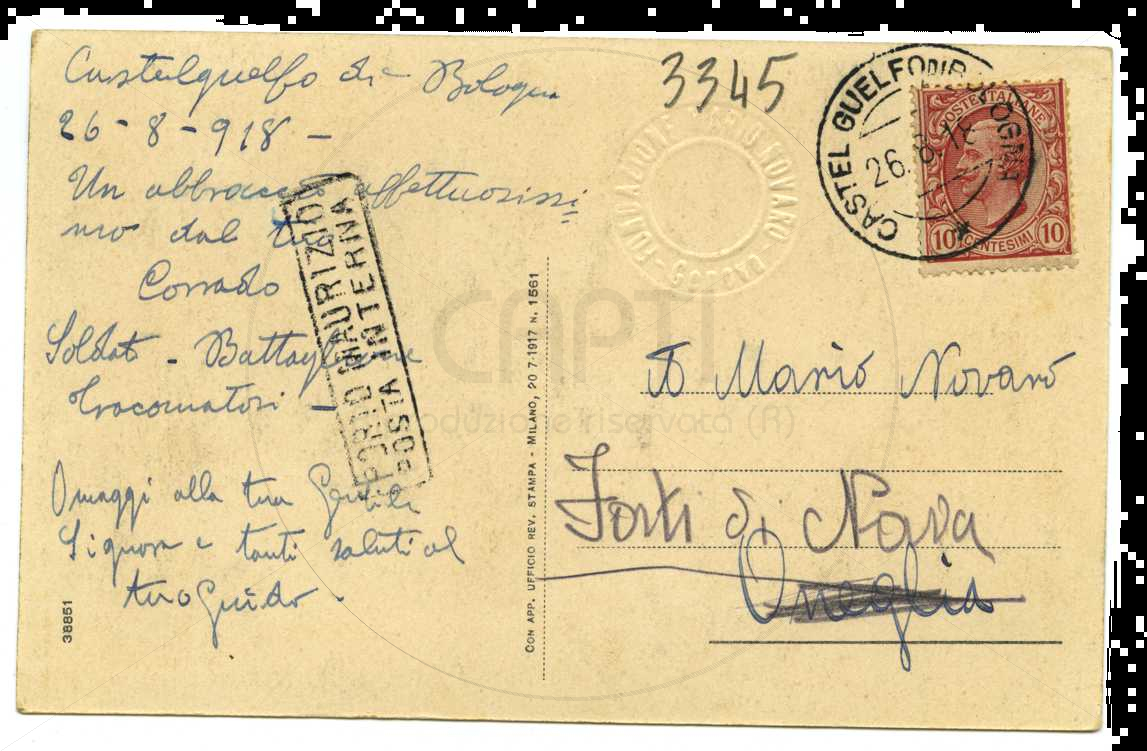 Castelguelfo di Bologna
26-8-918-
Un abbraccio affettuosissi
mo dal tuo
Corrado
Soldato - Battaglione
Tracomatosi -
Omaggi alla tua Gentile
Signora e tanti saluti al
tuo Guido.
38851
PORTO MAURIZIO
POSTA INTERNA
CON APP. UFFICIO REV. STAMPA - MILANO, 20-7-1917 N. 1561
3345
FONDAZIONE MARIO NOVARO
GENOVA
CASTEL GUELFO DI BOLOGNA
26.8.18
POSTE ITALIANE
10 CENTESIMI 10
Mario Novaro
Forti di Nava
Oneglia
CAPTI
riproduzione riservata (R)